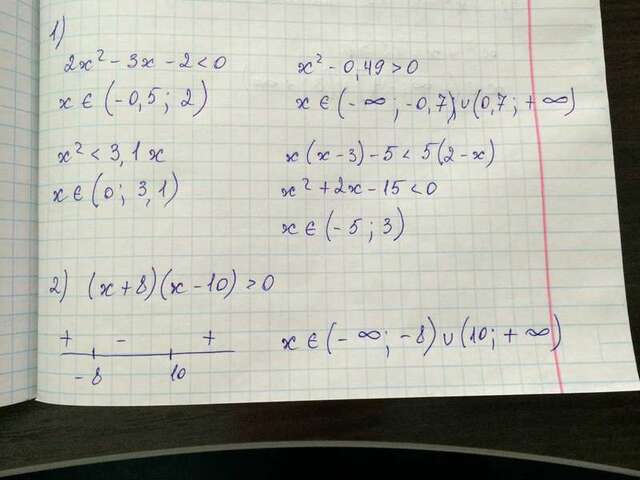 1) 2x² - 3x - 2 < 0
x ∈ (-0,5; 2)
x² < 3,1x
x ∈ (0; 3,1)
x² - 0,49 > 0
x ∈ (-∞; -0,7) ∪ (0,7; +∞)
x(x-3) - 5 < 5(2-x)
x² + 2x - 15 < 0
x ∈ (-5; 3)
2) (x+8)(x-10) > 0
+ - +
-8 10
x ∈ (-∞; -8) ∪ (10; +∞)